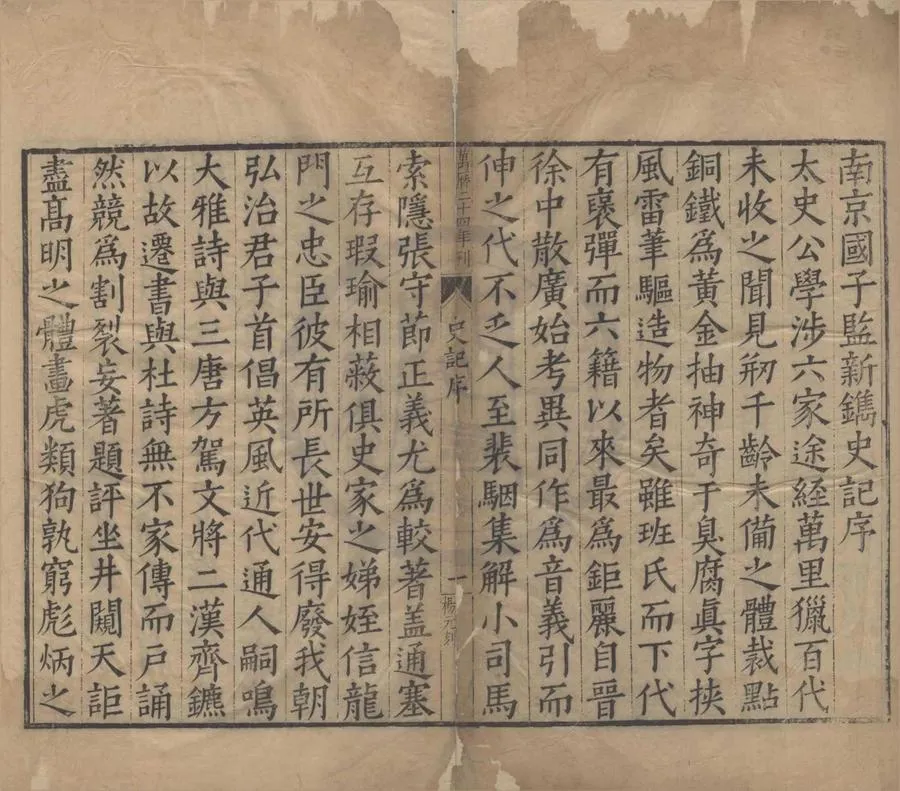 南京國子監新鐫史記序
太史公學涉六家途經萬里獵百代
未收之聞見刱千齡未備之體裁點
銅鐵爲黃金抽神奇于臭腐眞字挾
風雷筆驅造物者矣雖班氏而下代
有襃彈而六籍以來最爲鉅麗自晉
徐中散廣始考異同作爲音義引而
伸之代不乏人至裴駰集解小司馬
萬曆二十四年刊
史記序
一
楊元刻
索隱張守節正義尤爲較著盖通塞
互存瑕瑜相蔽俱史家之娣姪信龍
門之忠臣彼有所長世安得廢我朝
弘治君子首倡英風近代通人嗣鳴
大雅詩與三唐方駕文將二漢齊鑣
以故遷書與杜詩無不家傳而戸誦
然競爲割裂妄著題評坐井闚天詎
盡髙明之體畫虎類狗孰窮彪炳之